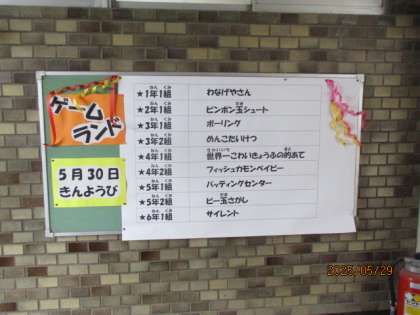 ゲーム
ランド
5月30日
きんようび
★1年1組 わなげやさん
★2年1組 ピンポン玉シュート
★3年1組 ボーリング
★3年2組 めんこたいけつ
★4年1組 世界一こわいきょうふの的あて
★4年2組 フィッシュカモンベイビー
★5年1組 バッティングセンター
★5年2組 ビー玉さがし
★6年1組 サイレント
2025/05/29